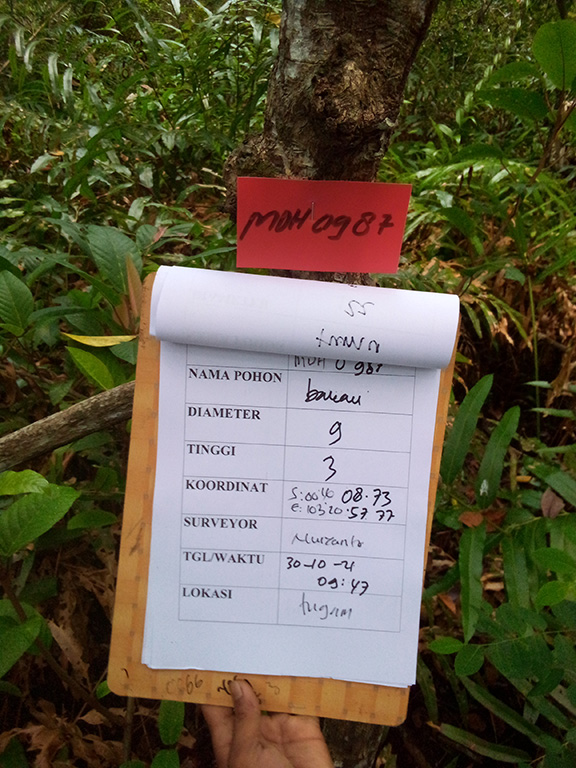 MDH 0987
55
MDH 0987
NAMA POHON bakau
DIAMETER 9
TINGGI 3
KOORDINAT S:00°40 08.73
e:103°20.57.77
SURVEYOR
TGL/WAKTU 30-10-21
09:47
LOKASI